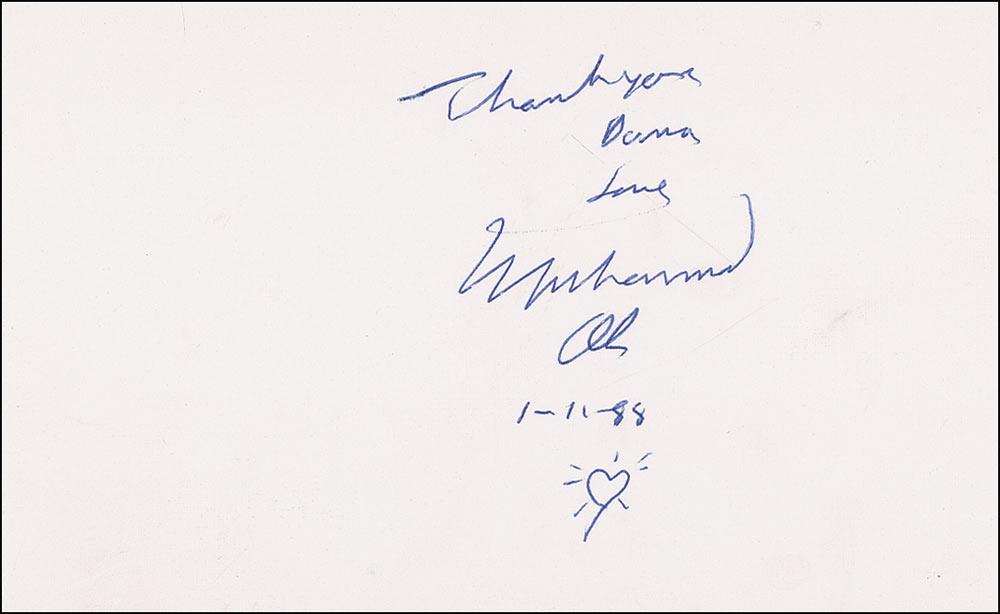 Thank you
Dana
Love
Muhammad
Ali
1-11-88